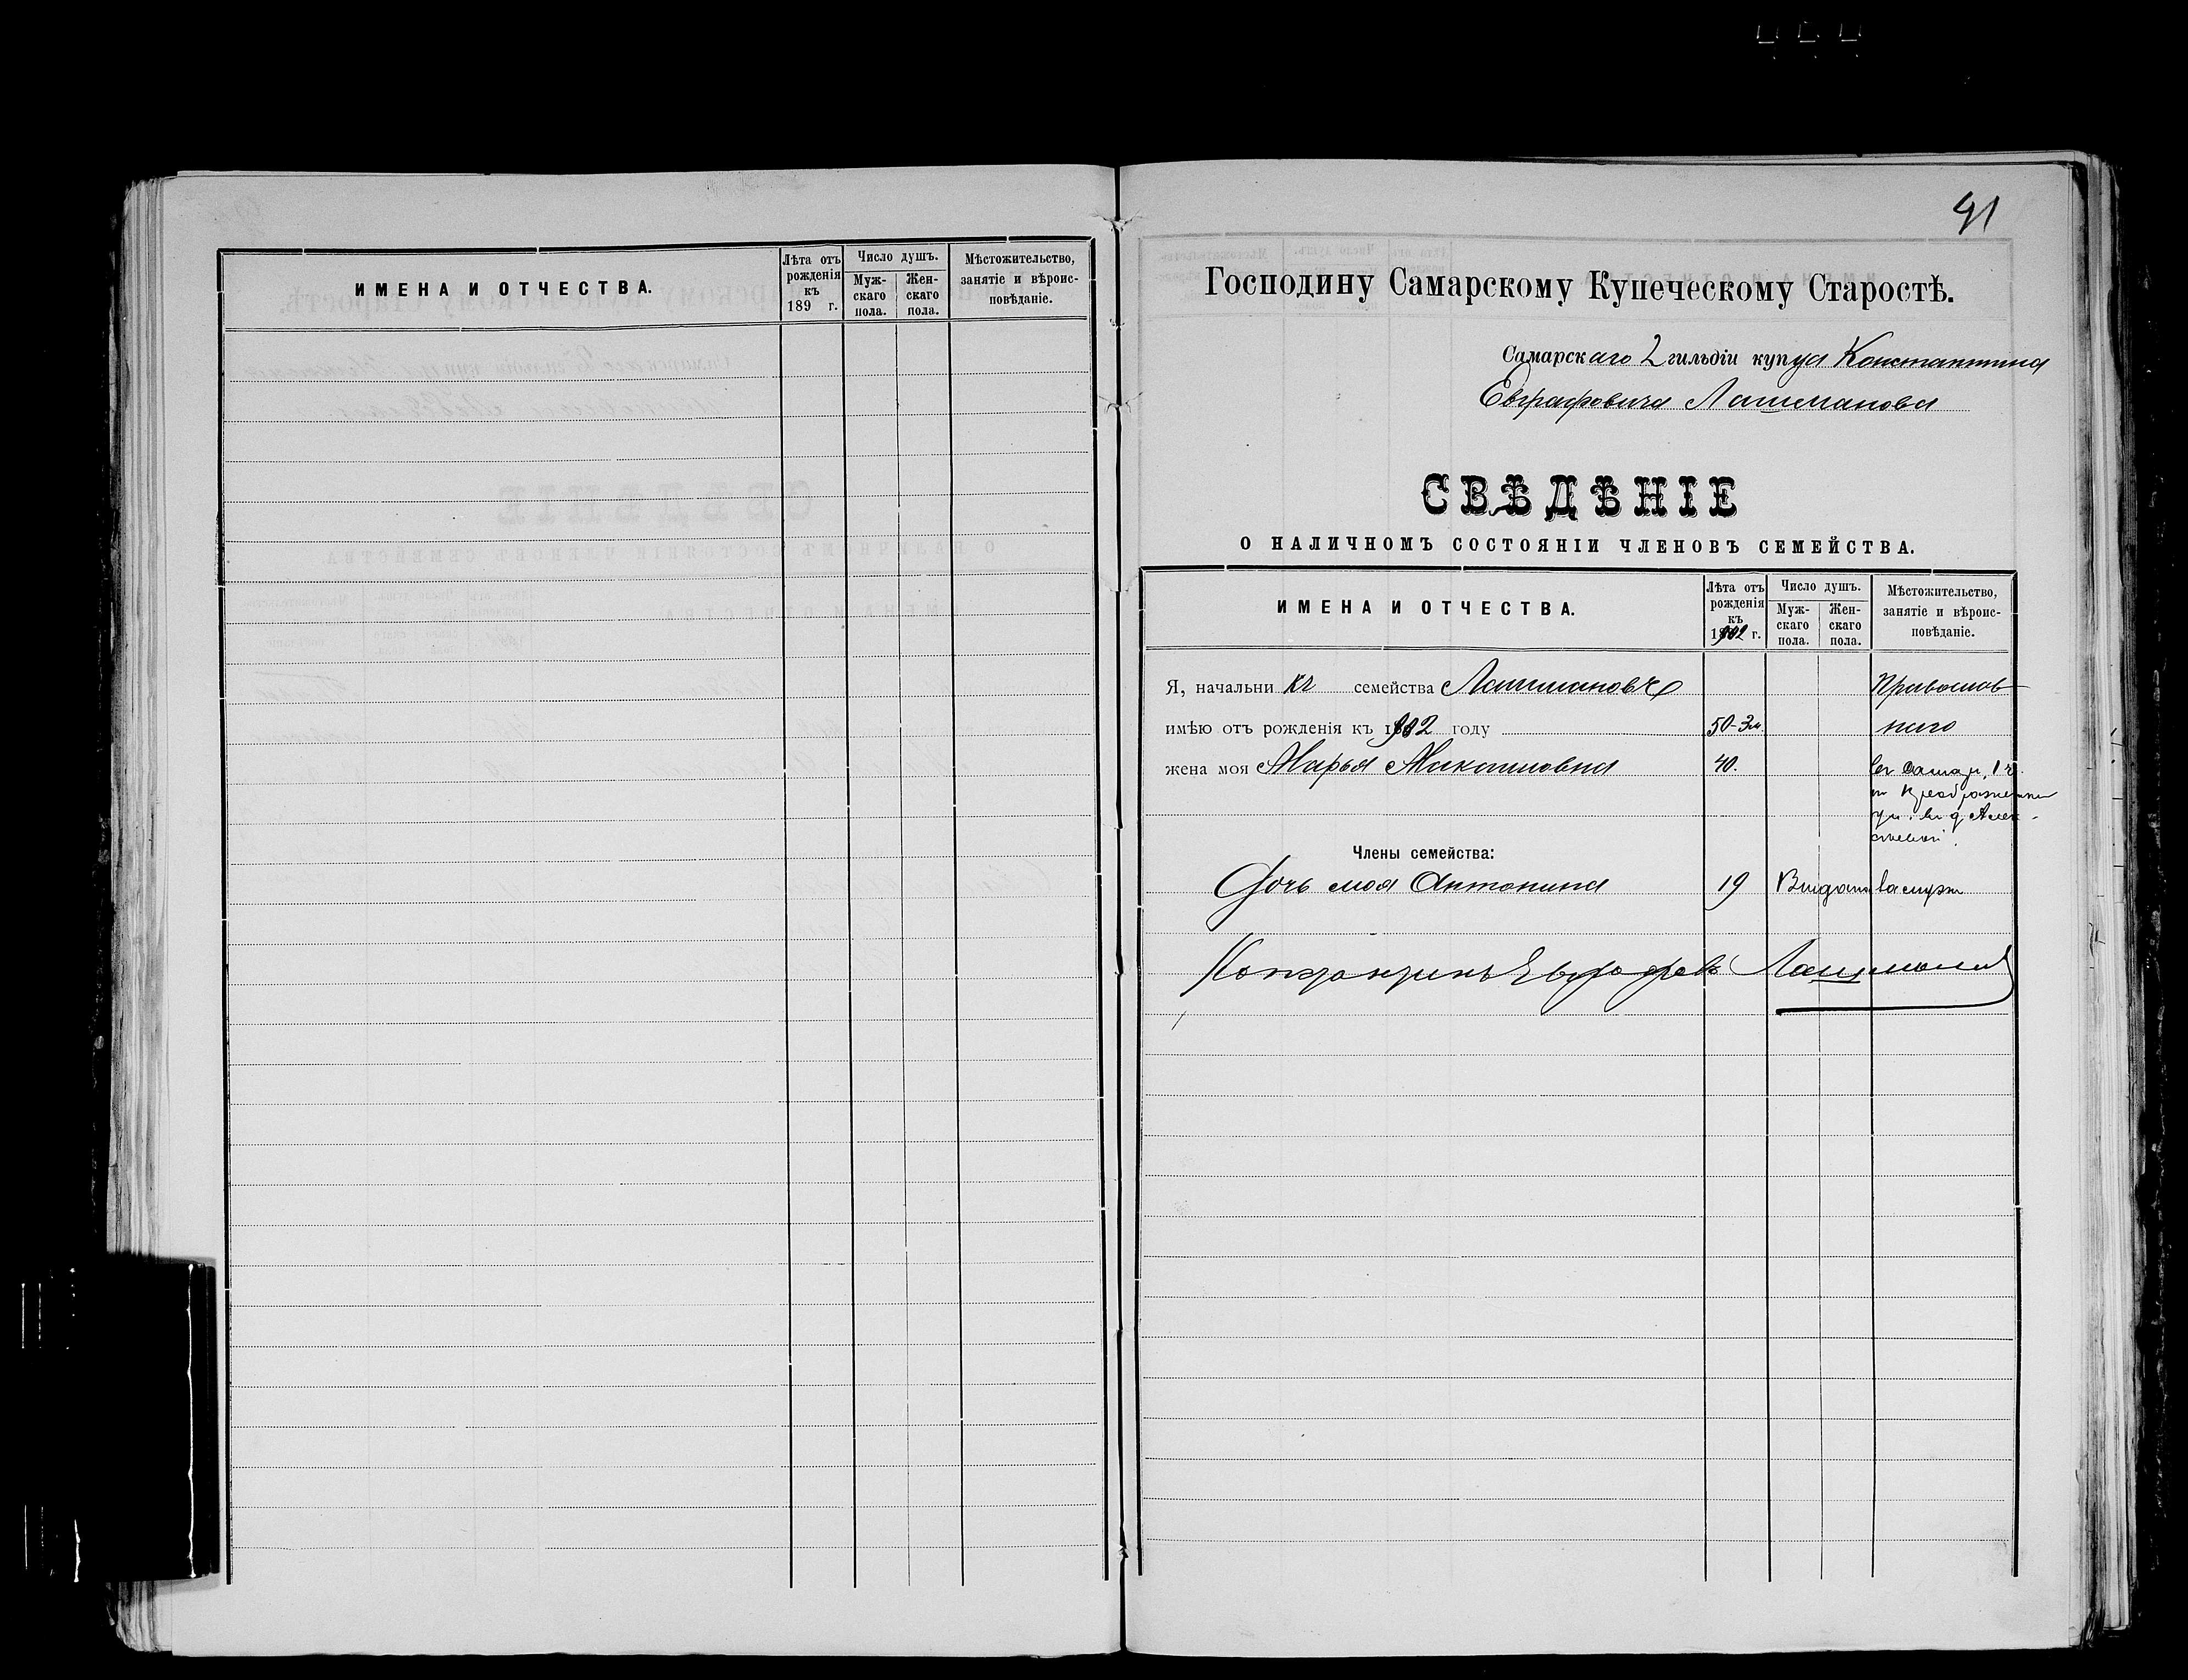 ИМЕНА И ОТЧЕСТВА.
Лѣта отъ рожденія къ 189 г.
Число душъ.
Муж-скаго пола.
Жен-скаго пола.
Мѣстожительство, занятіе и вѣроис-повѣданіе.
41
Господину Самарскому Купеческому Старостѣ.
Самарскаго 2 гильдіи купца Константина
Евграфовича Лашманова
СВѢДѢНІЕ
О НАЛИЧНОМЪ СОСТОЯНІИ ЧЛЕНОВЪ СЕМЕЙСТВА.
ИМЕНА И ОТЧЕСТВА.
Лѣта отъ рожденія къ 1902 г.
Число душъ.
Муж-скаго пола.
Жен-скаго пола.
Мѣстожительство, занятіе и вѣроис-повѣданіе.
Я, начальникъ семейства Лашмановъ Православ-
имѣю отъ рожденія къ 1902 году 50-3м. наго
жена моя Марья 40. въ Самар. 1 ч.
по Преображенской
ул. въ д Алек-
Члены семейства:
Дочь моя Антонина 19 Выдана замужъ
Константинъ Евграфовъ Лашмановъ